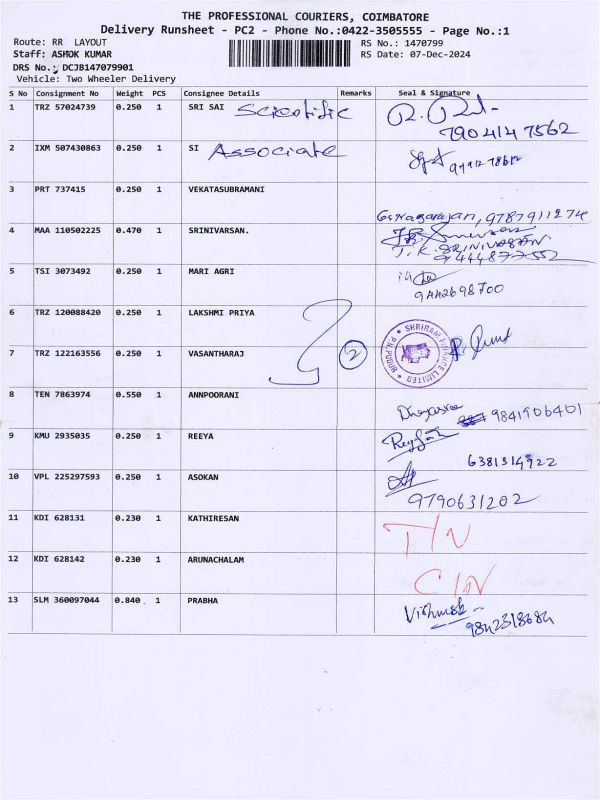 THE PROFESSIONAL COURIERS, COIMBATORE
Delivery Runsheet - PC2 - Phone No.:0422-3505555 - Page No.:1
Route: RR LAYOUT RS No.: 1470799
Staff: ASHOK KUMAR RS Date: 07-Dec-2024
DRS No.: DCJB147079901
Vehicle: Two Wheeler Delivery
S No Consignment No Weight PCS Consignee Details Remarks Seal & Signature
1 TRZ 57024739 0.250 1 SRI SAI Scientific
7904147562
2 IXM 507430863 0.250 1 SI Associate
3 PRT 737415 0.250 1 VEKATASUBRAMANI
G. Nagarajan, 9787911274
4 MAA 110502225 0.470 1 SRINIVARSAN.
T.K. SRINIVASAN
9444877552
5 TSI 3073492 0.250 1 MARI AGRI
9442698700
6 TRZ 120088420 0.250 1 LAKSHMI PRIYA
7 TRZ 122163556 0.250 1 VASANTHARAJ 2 SHRIRAM FINANCE LIMITED
8 TEN 7863974 0.550 1 ANNPOORANI
9841906401
9 KMU 2935035 0.250 1 REEYA
6381314922
10 VPL 225297593 0.250 1 ASOKAN
9790631202
11 KDI 628131 0.230 1 KATHIRESAN T/N
12 KDI 628142 0.230 1 ARUNACHALAM C/N
13 SLM 360097044 0.840 1 PRABHA
9842318684